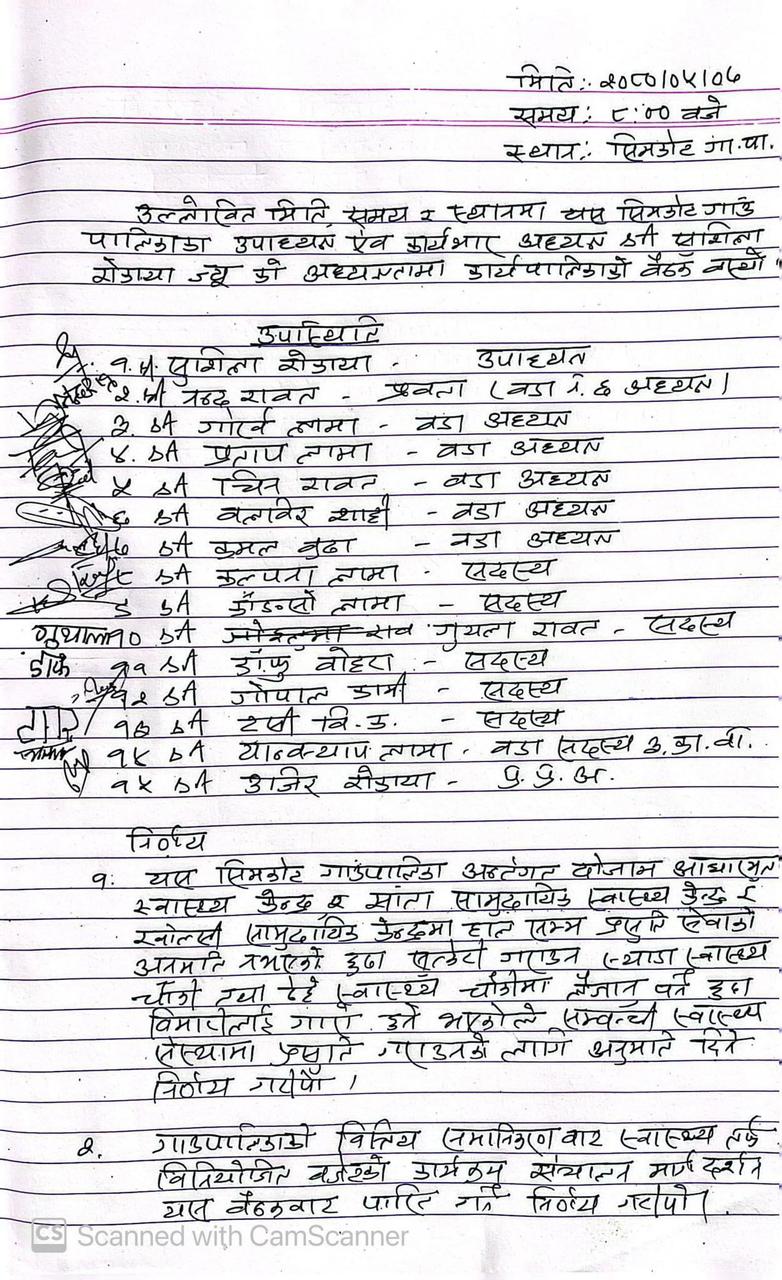 मिति:: २०८०/०४/०७
समय: ८:०० बजे
स्थान:: सिमकोट गा.पा.
उल्लेखित मिति, समय र स्थानमा यस सिमकोट गाउँ
पालिकाका उपाध्यक्ष एवं कार्यभार अध्यक्ष श्री सुशिला
रोकाया ज्यू को अध्यक्षतामा कार्यपालिकाको बैठक बस्यो
उपस्थिति
१. श्री सुशिला रोकाया - उपाध्यक्ष
२. श्री नन्द रावत - प्रवक्ता (वडा नं. ६ अध्यक्ष)
३. श्री गोर्वे लामा - वडा अध्यक्ष
४. श्री प्रताप लामा - वडा अध्यक्ष
५ श्री चित्र रावत - वडा अध्यक्ष
६ श्री बलविर शाही - वडा अध्यक्ष
७ श्री कमल बुढा - वडा अध्यक्ष
८ श्री कल्पना लामा - सदस्य
९ श्री लामा - सदस्य
१० श्री गुथला रावत - सदस्य
डफि ११ श्री डाँफु बोहरा :- सदस्य
१२ श्री गोपाल कामी - सदस्य
१३ श्री टसी वि.क. - सदस्य
१४ श्री लामा - वडा सदस्य
१५ श्री अजिर रोकाया - प्र. प्र. अ.
निर्णय
१. यस सिमकोट गाउँपालिका अन्तर्गत आधारभुत
स्वास्थ्य केन्द्र र सामुदायिक स्वास्थ्य केन्द्र र
सामुदायिक केन्द्रमा हाल सम्म प्रसुति सेवाको
अनुमति नभएको हुदा सुत्केरी गराउन स्वास्थ्य
चौकी तथा स्वास्थ्य चौकीमा लैजानु पर्ने हुदा
विमारीलाई गाह्रो हुने भएकोले सम्वन्धी स्वास्थ्य
संस्थामा प्रसुति गराउनको लागि अनुमति दिने
निर्णय गरीयो ।
२. गाउँपालिकाको वित्तिय समानिकरण वाट स्वास्थ्य तर्फ
विनियोजित वजेटको कार्यक्रम संचालन मार्ग दर्शन
यस बैठकवाट पारित गर्ने निर्णय गरीयो ।
CS Scanned with CamScanner